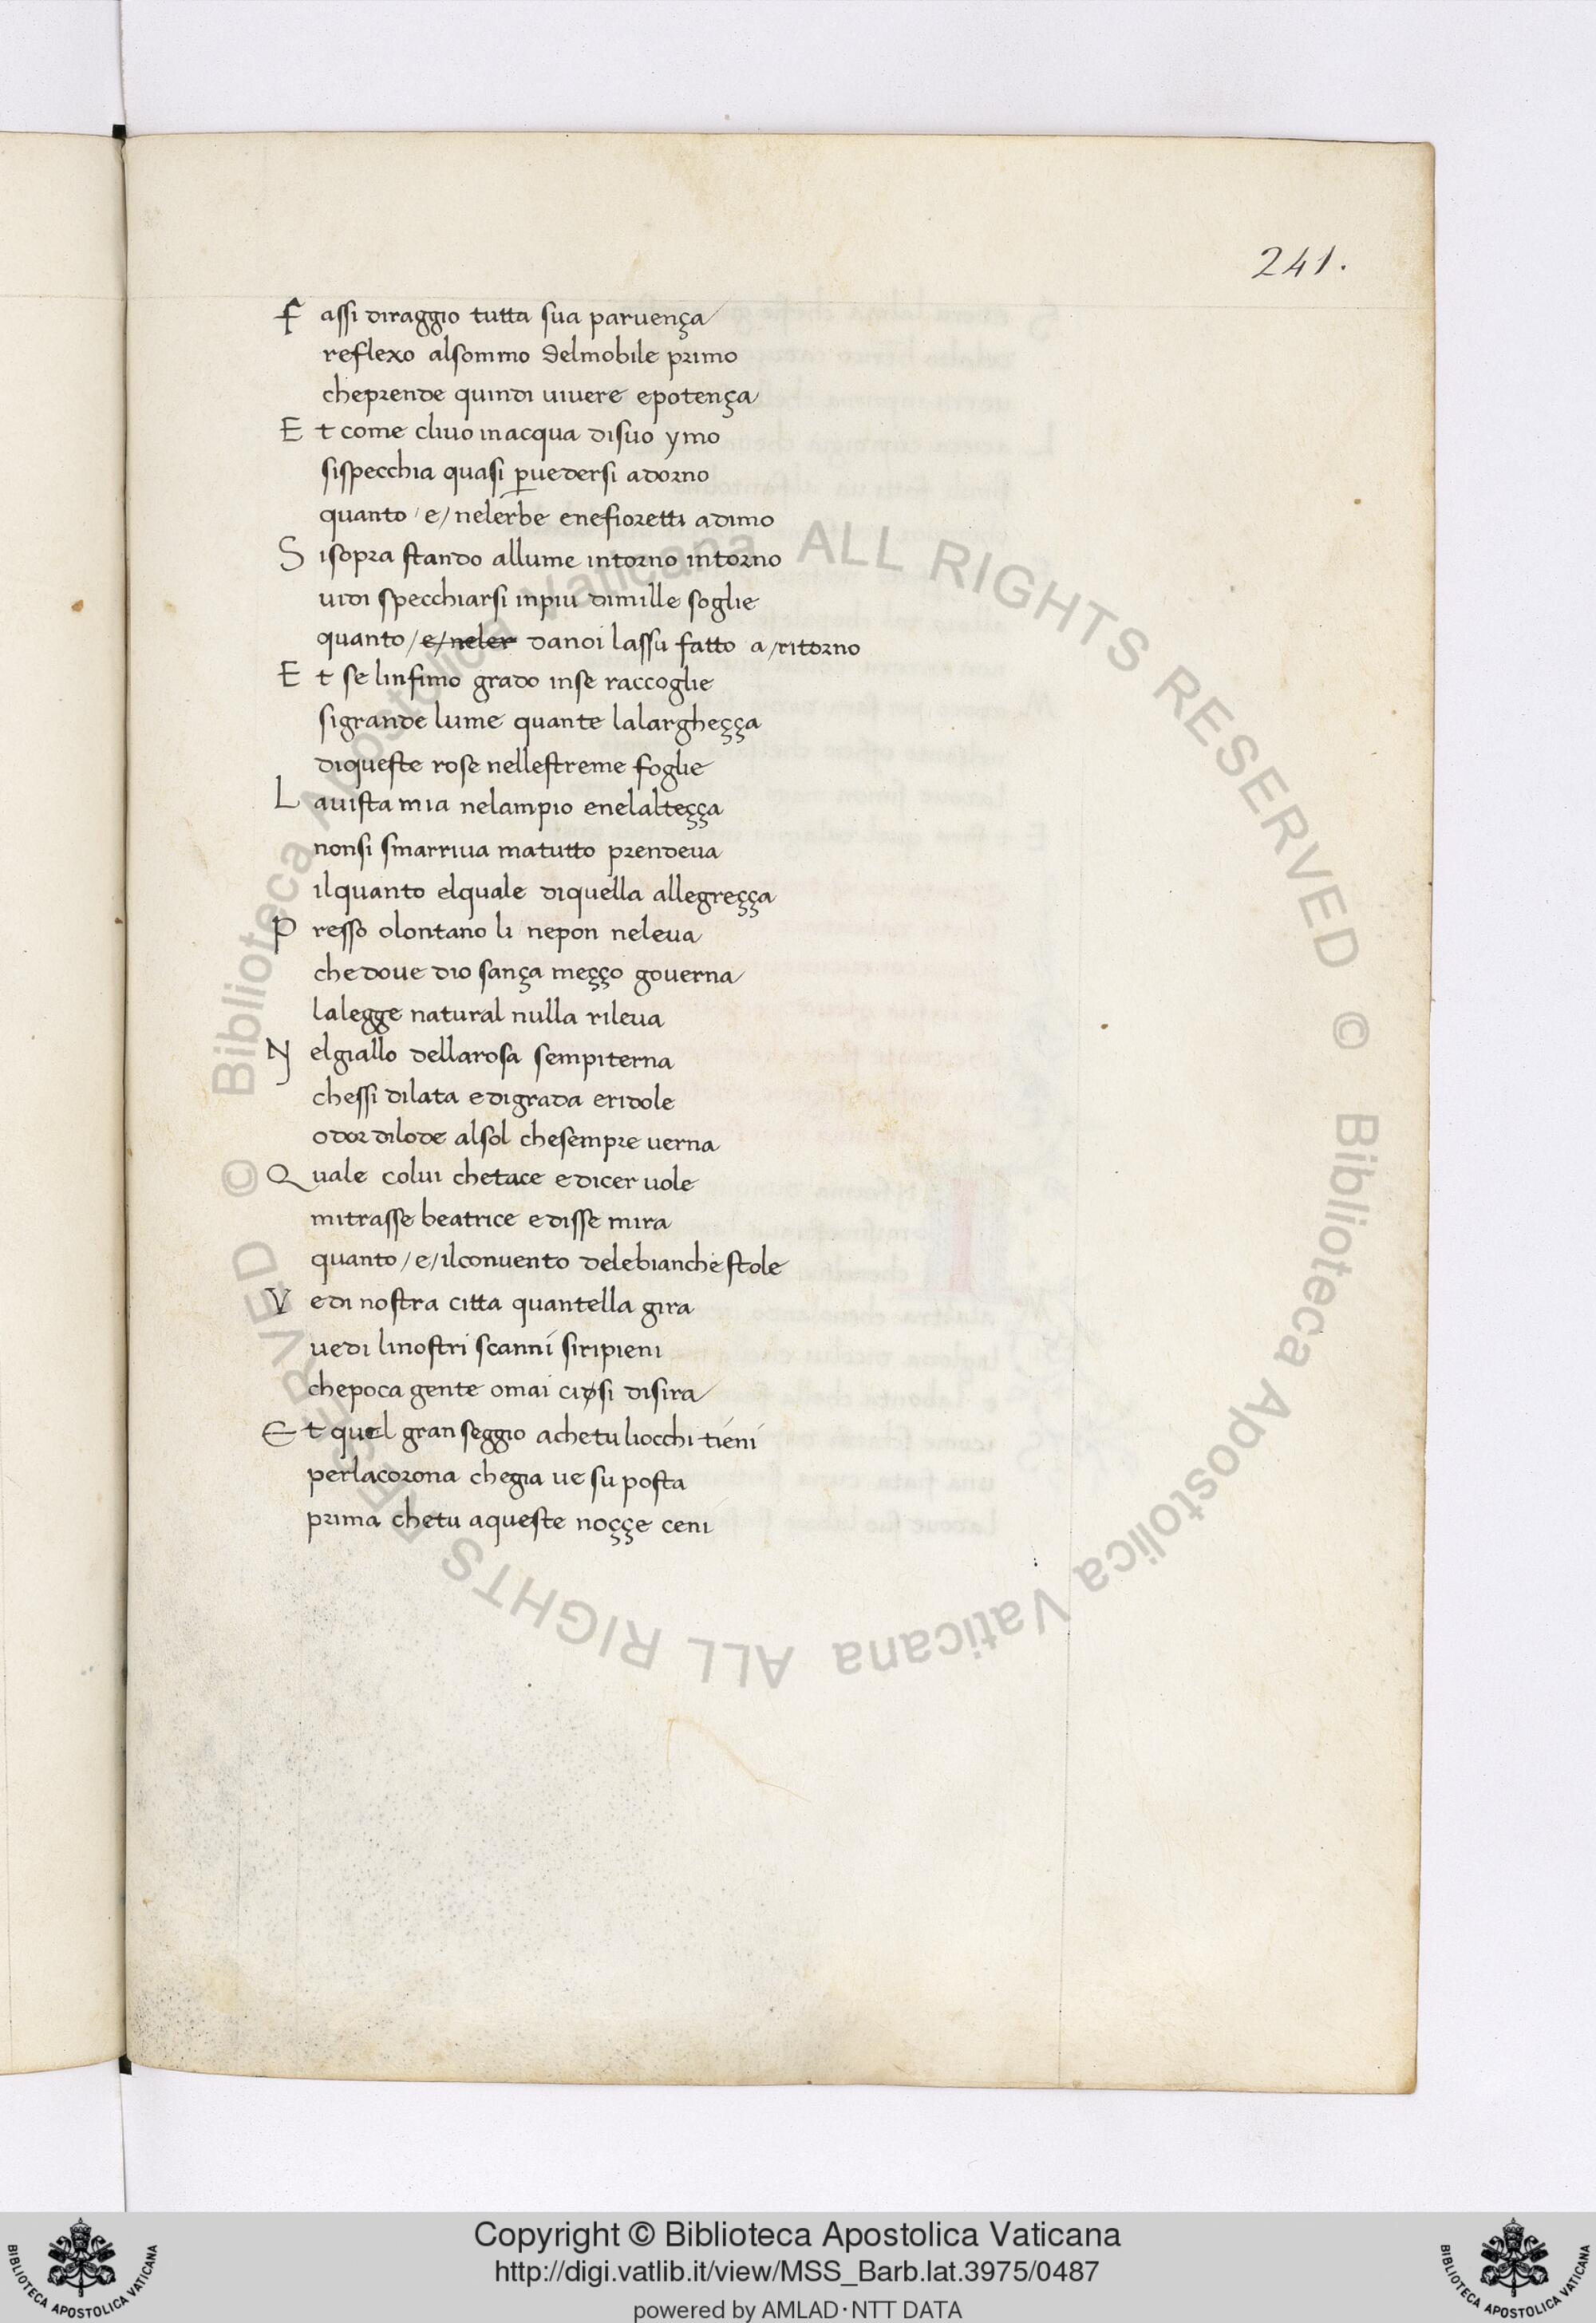 241.
F assi diraggio tutta sua paruença
reflexo alsommo delmobile primo
cheprende quindi uiuere epotença
E t come cliuo inacqua disuo ymo
sispecchia quasi ꝑuedersi adorno
quanto /e/ nelerbe enefioretti adimo
S isopra stando allume intorno intorno
uidi specchiarsi inpiu dimille soglie
quanto /e/ neler danoi lassu fatto a/ritorno
E t se linfimo grado inse raccoglie
sigrande lume quante lalargheçça
diqueste rose nellestreme foglie
L auista mia nelampio enelalteçça
nonsi smarriua matutto prendeua
ilquanto elquale diquella allegreçça
P resso olontano li nepon neleua
chedoue dio sança meçço gouerna
lalegge natural nulla rileua
N elgiallo dellarosa sempiterna
chessi dilata edigrada eridole
odor dilode alsol chesempre uerna
Q uale colui chetace edicer uole
mitrasse beatrice edisse mira
quanto /e/ ilconuento delebianche stole
V edi nostra citta quantella gira
uedi linostri scanni siripieni
chepoca gente omai ciosi disira
E t quel gran seggio achetu liocchi tieni
perlacorona chegia ue su posta
prima chetu aqueste noççe ceni
© Biblioteca Apostolica Vaticana ALL RIGHTS RESERVED © Biblioteca Apostolica Vaticana ALL RIGHTS RESERVED
Copyright © Biblioteca Apostolica Vaticana
http://digi.vatlib.it/view/MSS_Barb.lat.3975/0487
powered by AMLAD·NTT DATA
BIBLIOTECA APOSTOLICA VATICANA
BIBLIOTECA APOSTOLICA VATICANA